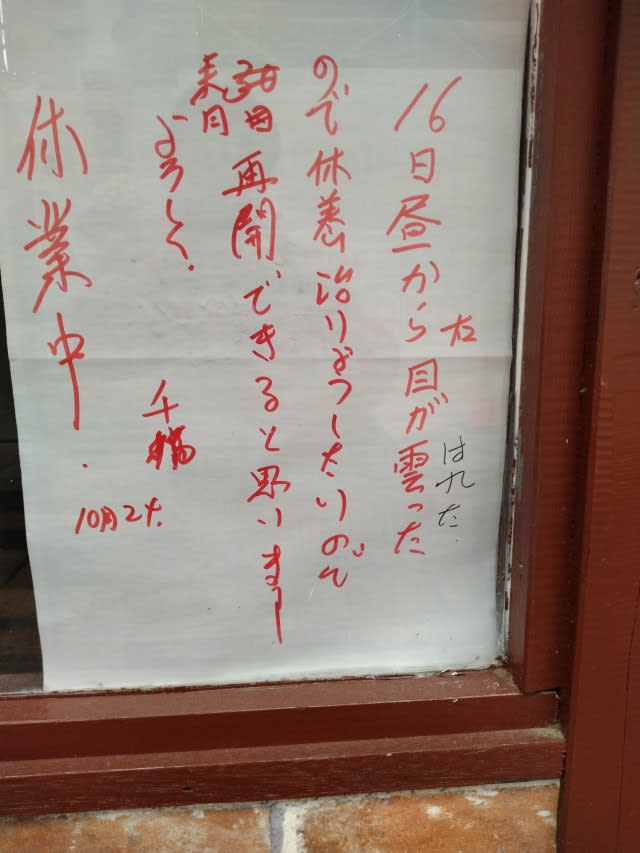 16日昼から目が雲った
左
はれた.
ので休養治りょうしたいので
来月
再開できると思います
よろしく.
千
10月24.
休業中.